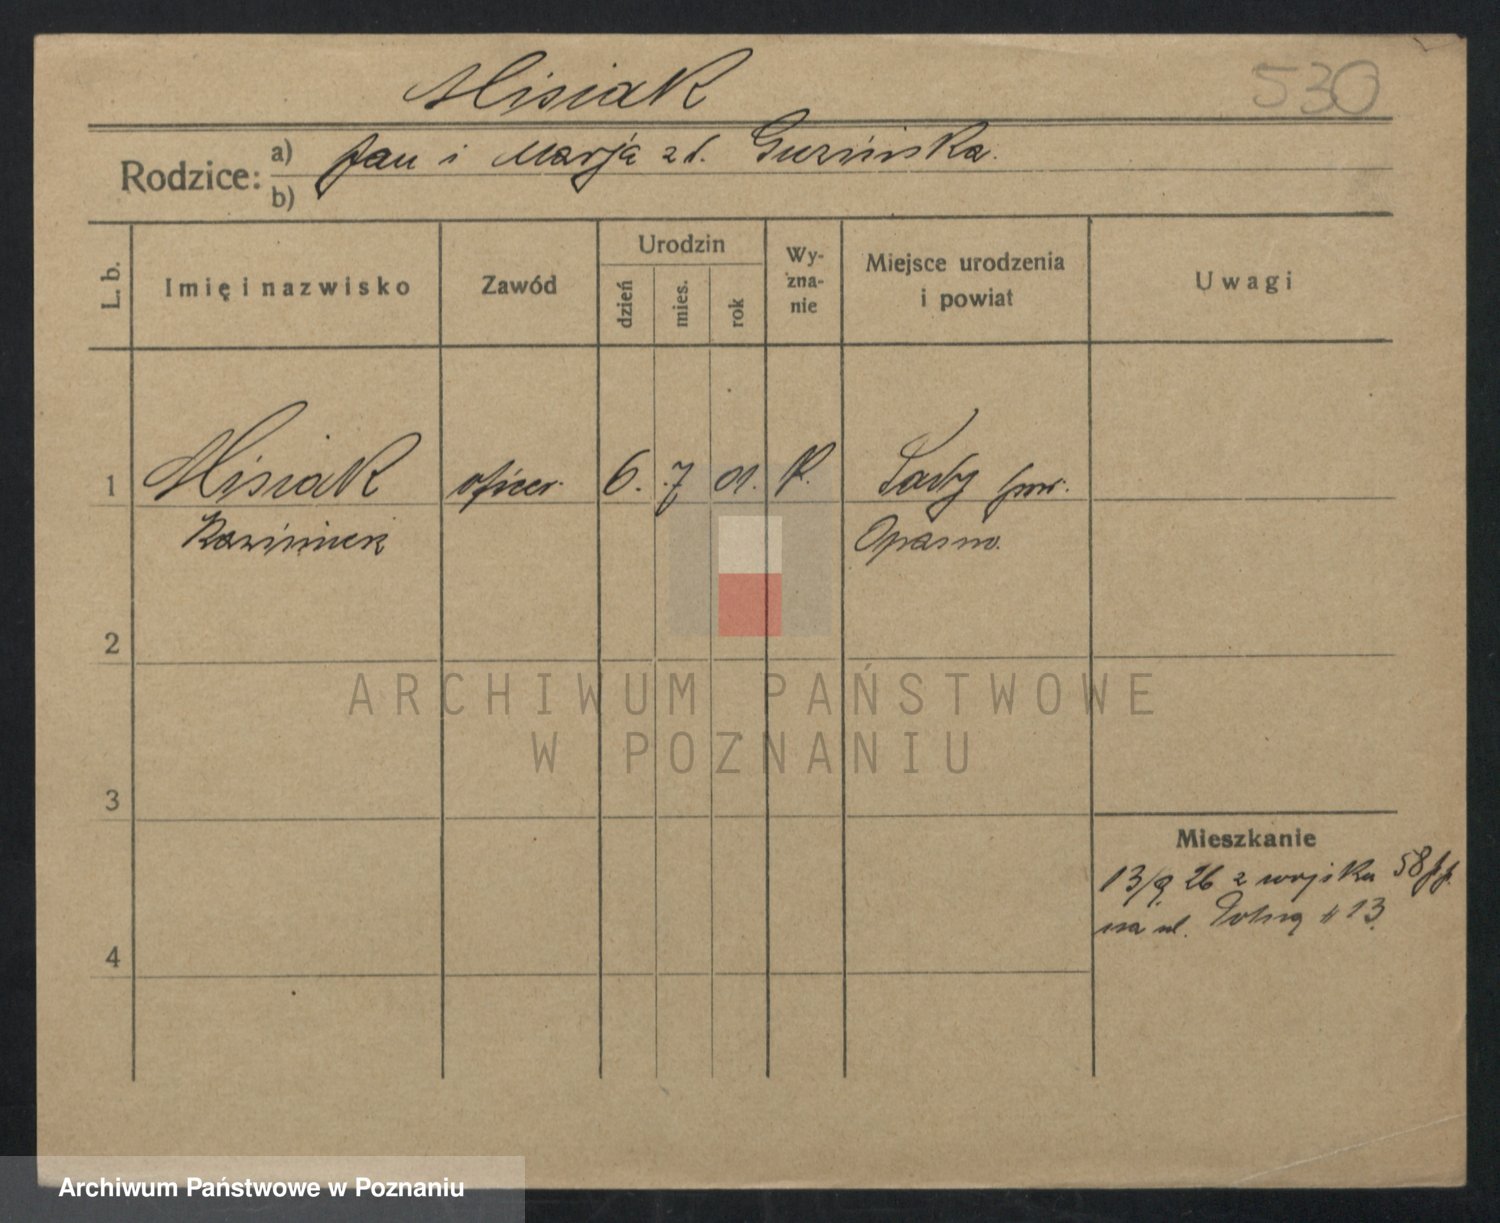 Misiak
530
Rodzice:
a) Jan i Marja zd.
b)
L. b.
Imię i nazwisko
Zawód
Urodzin
dzień
mies.
rok
Wy-
zna-
nie
Miejsce urodzenia
i powiat
Uwagi
1 Misiak oficer. 6. 7 01. K. Sady pow.
Kazimierz Opoczno.
2
ARCHIWUM PAŃSTWOWE
W POZNANIU
3
Mieszkanie
13/9 26 z wojska 58 p.p.
na ul. Polną # 13
4
Archiwum Państwowe w Poznaniu